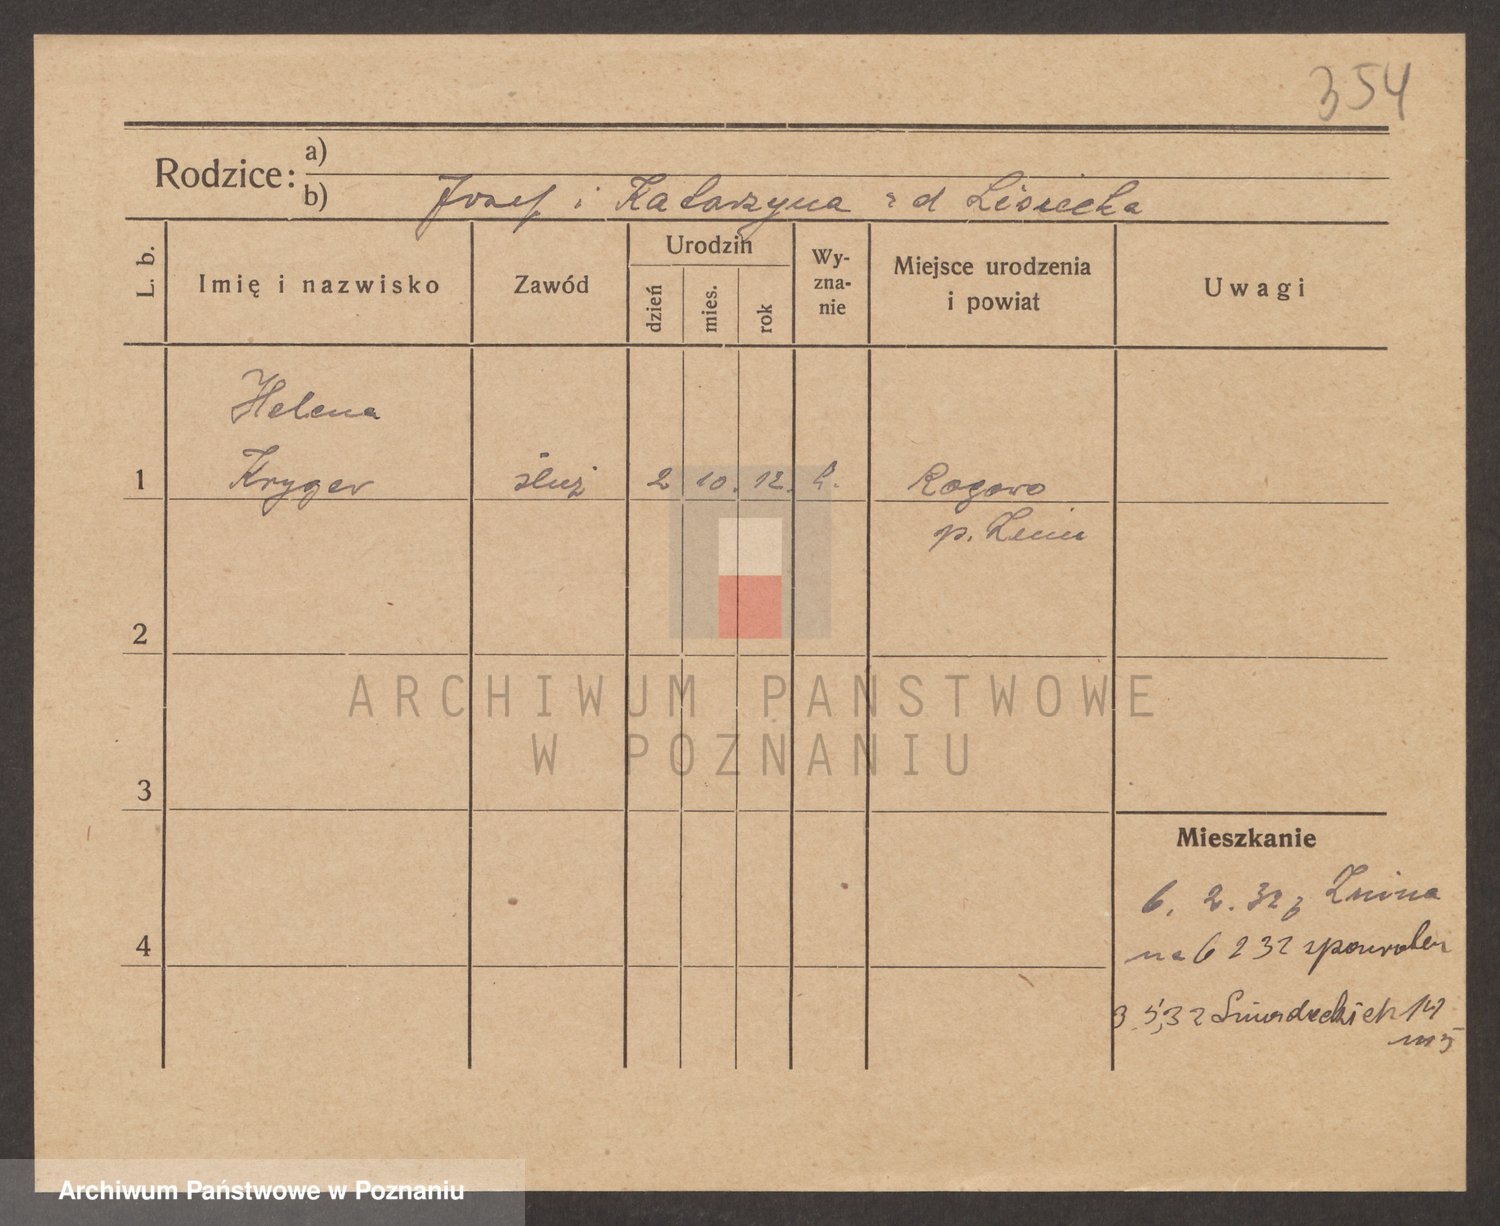 354
Rodzice: a)
b) Josef i Katarzyna z d Lisiecka
L. b.
Imię i nazwisko
Zawód
Urodzin
dzień
mies.
rok
Wy-
zna-
nie
Miejsce urodzenia
i powiat
Uwagi
Helena
1 Kryger służ 2 10. 12. k. Rogowo
p. Żnin
2
ARCHIWUM PAŃSTWOWE
W POZNANIU
3
Mieszkanie
6. 2. 32 z Żnina
4
na 6 2 32
3 5,32 14
m 5
Archiwum Państwowe w Poznaniu